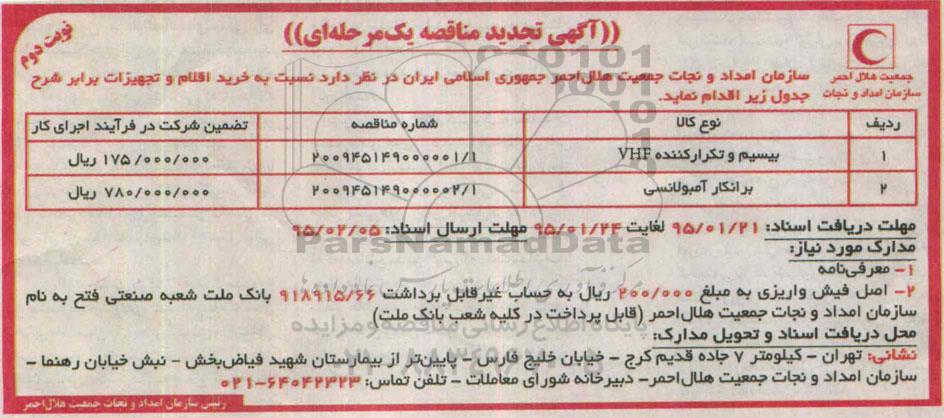 نوبت دوم
((آگهی تجدید مناقصه یک‌مرحله‌ای))
جمعیت هلال احمر
سازمان امداد و نجات
سازمان امداد و نجات جمعیت هلال‌احمر جمهوری اسلامی ایران در نظر دارد نسبت به خرید اقلام و تجهیزات برابر شرح
جدول زیر اقدام نماید.
ردیف نوع کالا شماره مناقصه تضمین شرکت در فرآیند اجرای کار
۱ بیسیم و تکرارکننده VHF ۲۰۰۹۴۵۱۴۹۰۰۰۰۰۱/۱ ۱۷۵/۰۰۰/۰۰۰ ریال
۲ برانکار آمبولانسی ۲۰۰۹۴۵۱۴۹۰۰۰۰۰۲/۱ ۷۸۰/۰۰۰/۰۰۰ ریال
مهلت دریافت اسناد: ۹۵/۰۱/۲۱ لغایت ۹۵/۰۱/۲۴ مهلت ارسال اسناد: ۹۵/۰۲/۰۵
ParsNamadData
مدارک مورد نیاز:
۱- معرفی‌نامه
۲- اصل فیش واریزی به مبلغ ۲۰۰/۰۰۰ ریال به حساب غیرقابل برداشت ۹۱۸۹۱۵/۶۶ بانک ملت شعبه صنعتی فتح به نام
سازمان امداد و نجات جمعیت هلال‌احمر (قابل پرداخت در کلیه شعب بانک ملت)
پایگاه اطلاع رسانی مناقصه و مزایده
محل دریافت اسناد و تحویل مدارک:
نشانی: تهران - کیلومتر ۷ جاده قدیم کرج - خیابان خلیج فارس - پایین‌تر از بیمارستان شهید فیاض‌بخش - نبش خیابان رهنما -
سازمان امداد و نجات جمعیت هلال‌احمر- دبیرخانه شورای معاملات - تلفن تماس: ۶۴۰۴۲۳۲۳-۰۲۱
رئیس سازمان امداد و نجات جمعیت هلال‌احمر